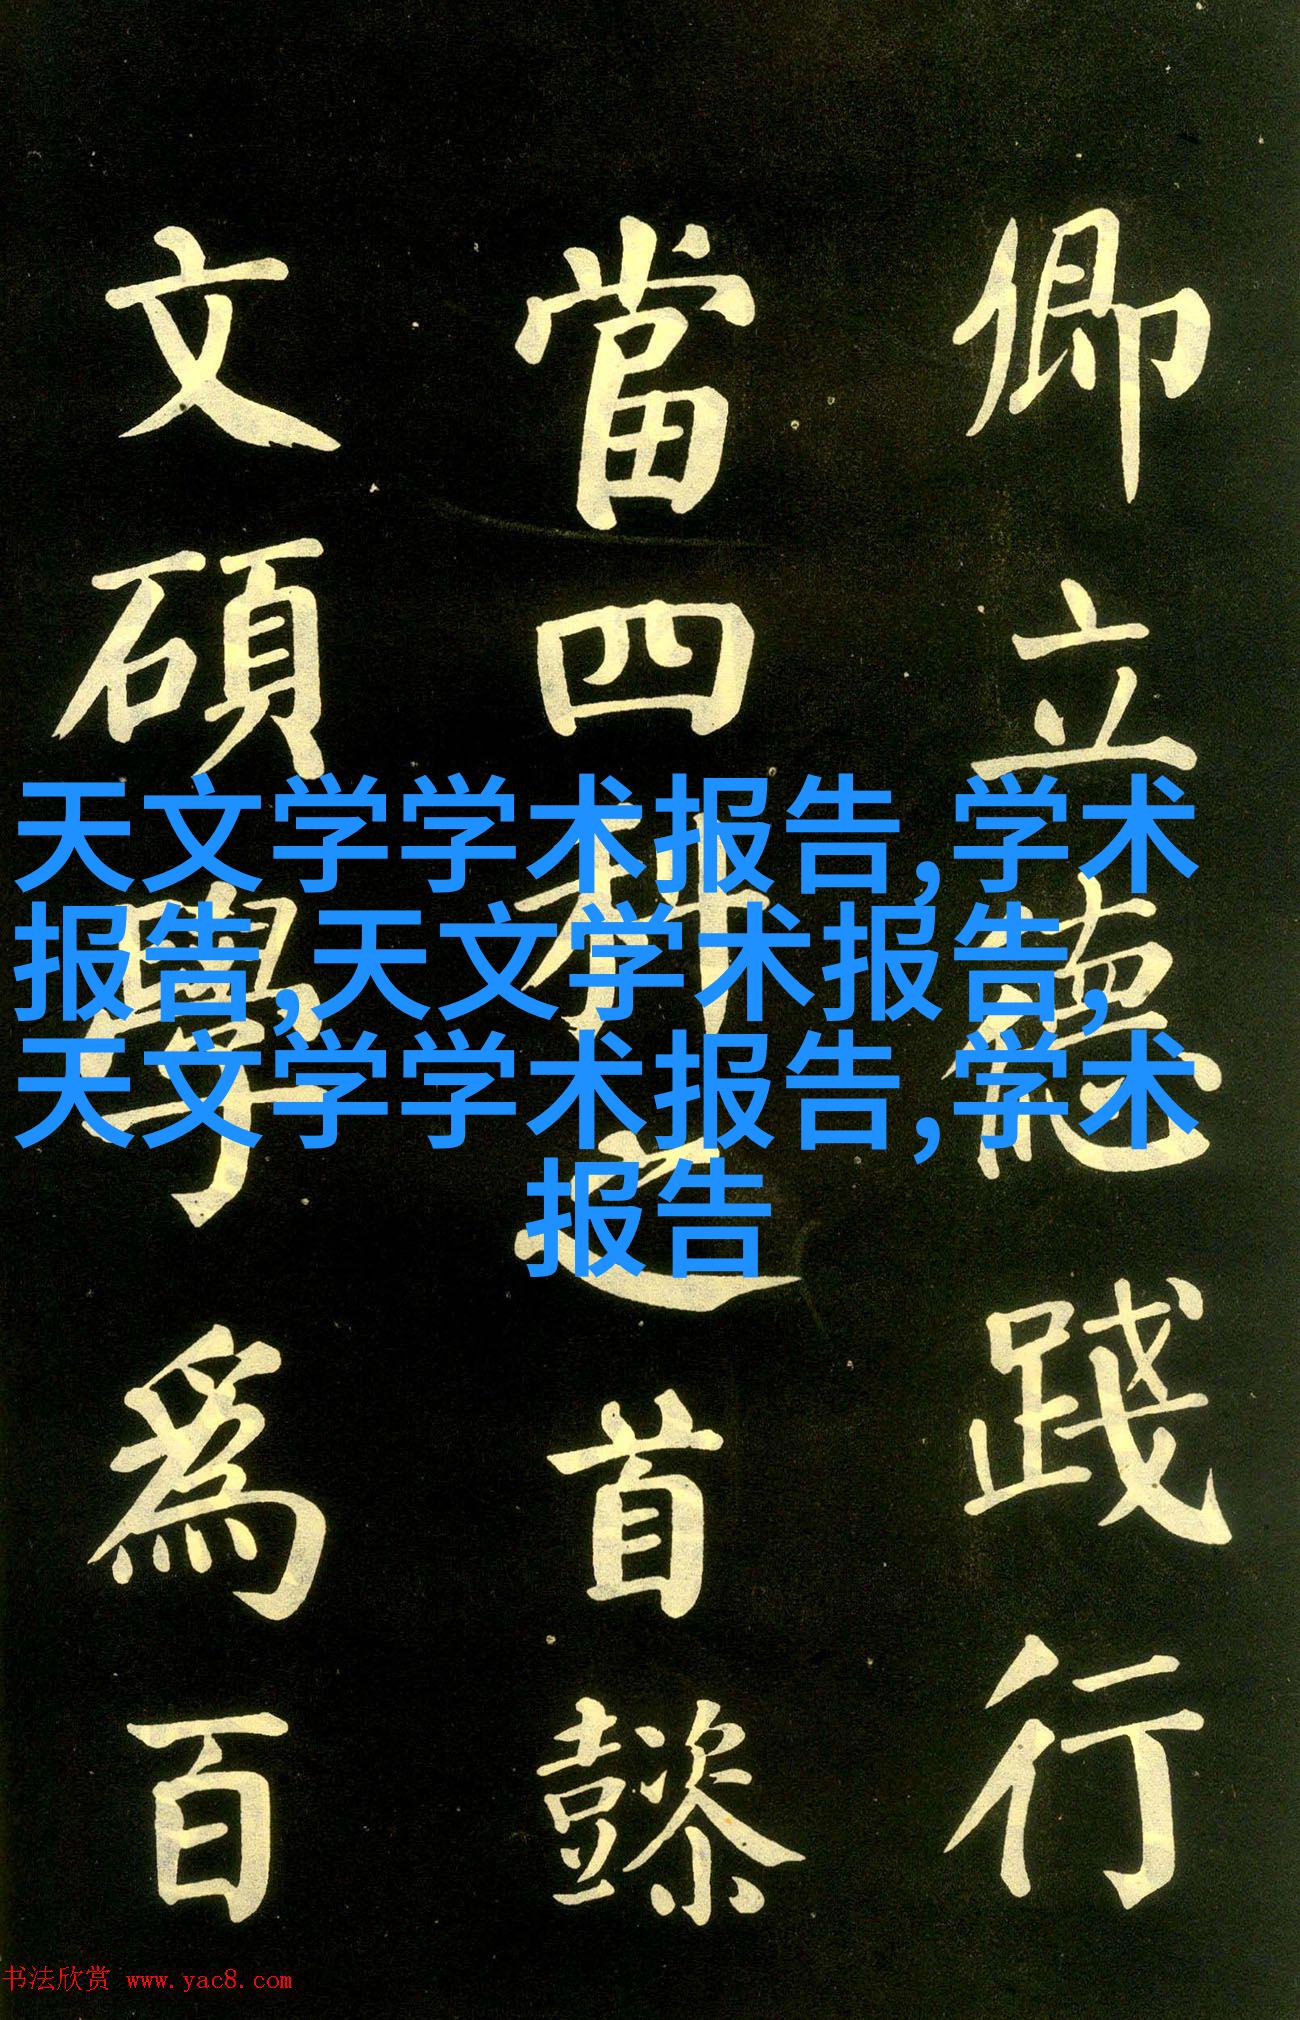 卿立德踐行
當四科之首懿
文碩學爲百
天文学学术报告,学术
报告,天文学术报告,
天文学学术报告,学术
报告
书法欣赏 www.yac8.com